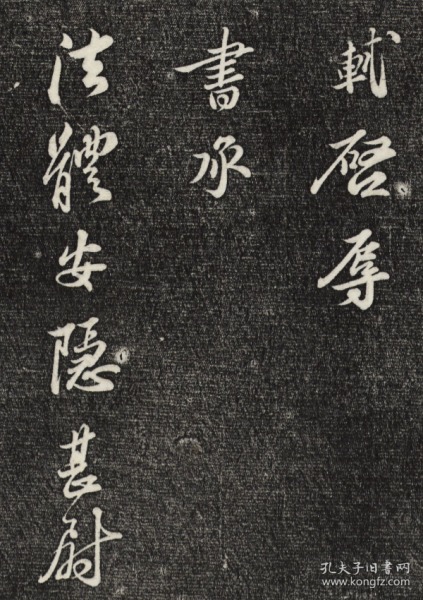 軾啓辱
書承
法體安隱甚尉
孔夫子旧書网
www.kongfz.com